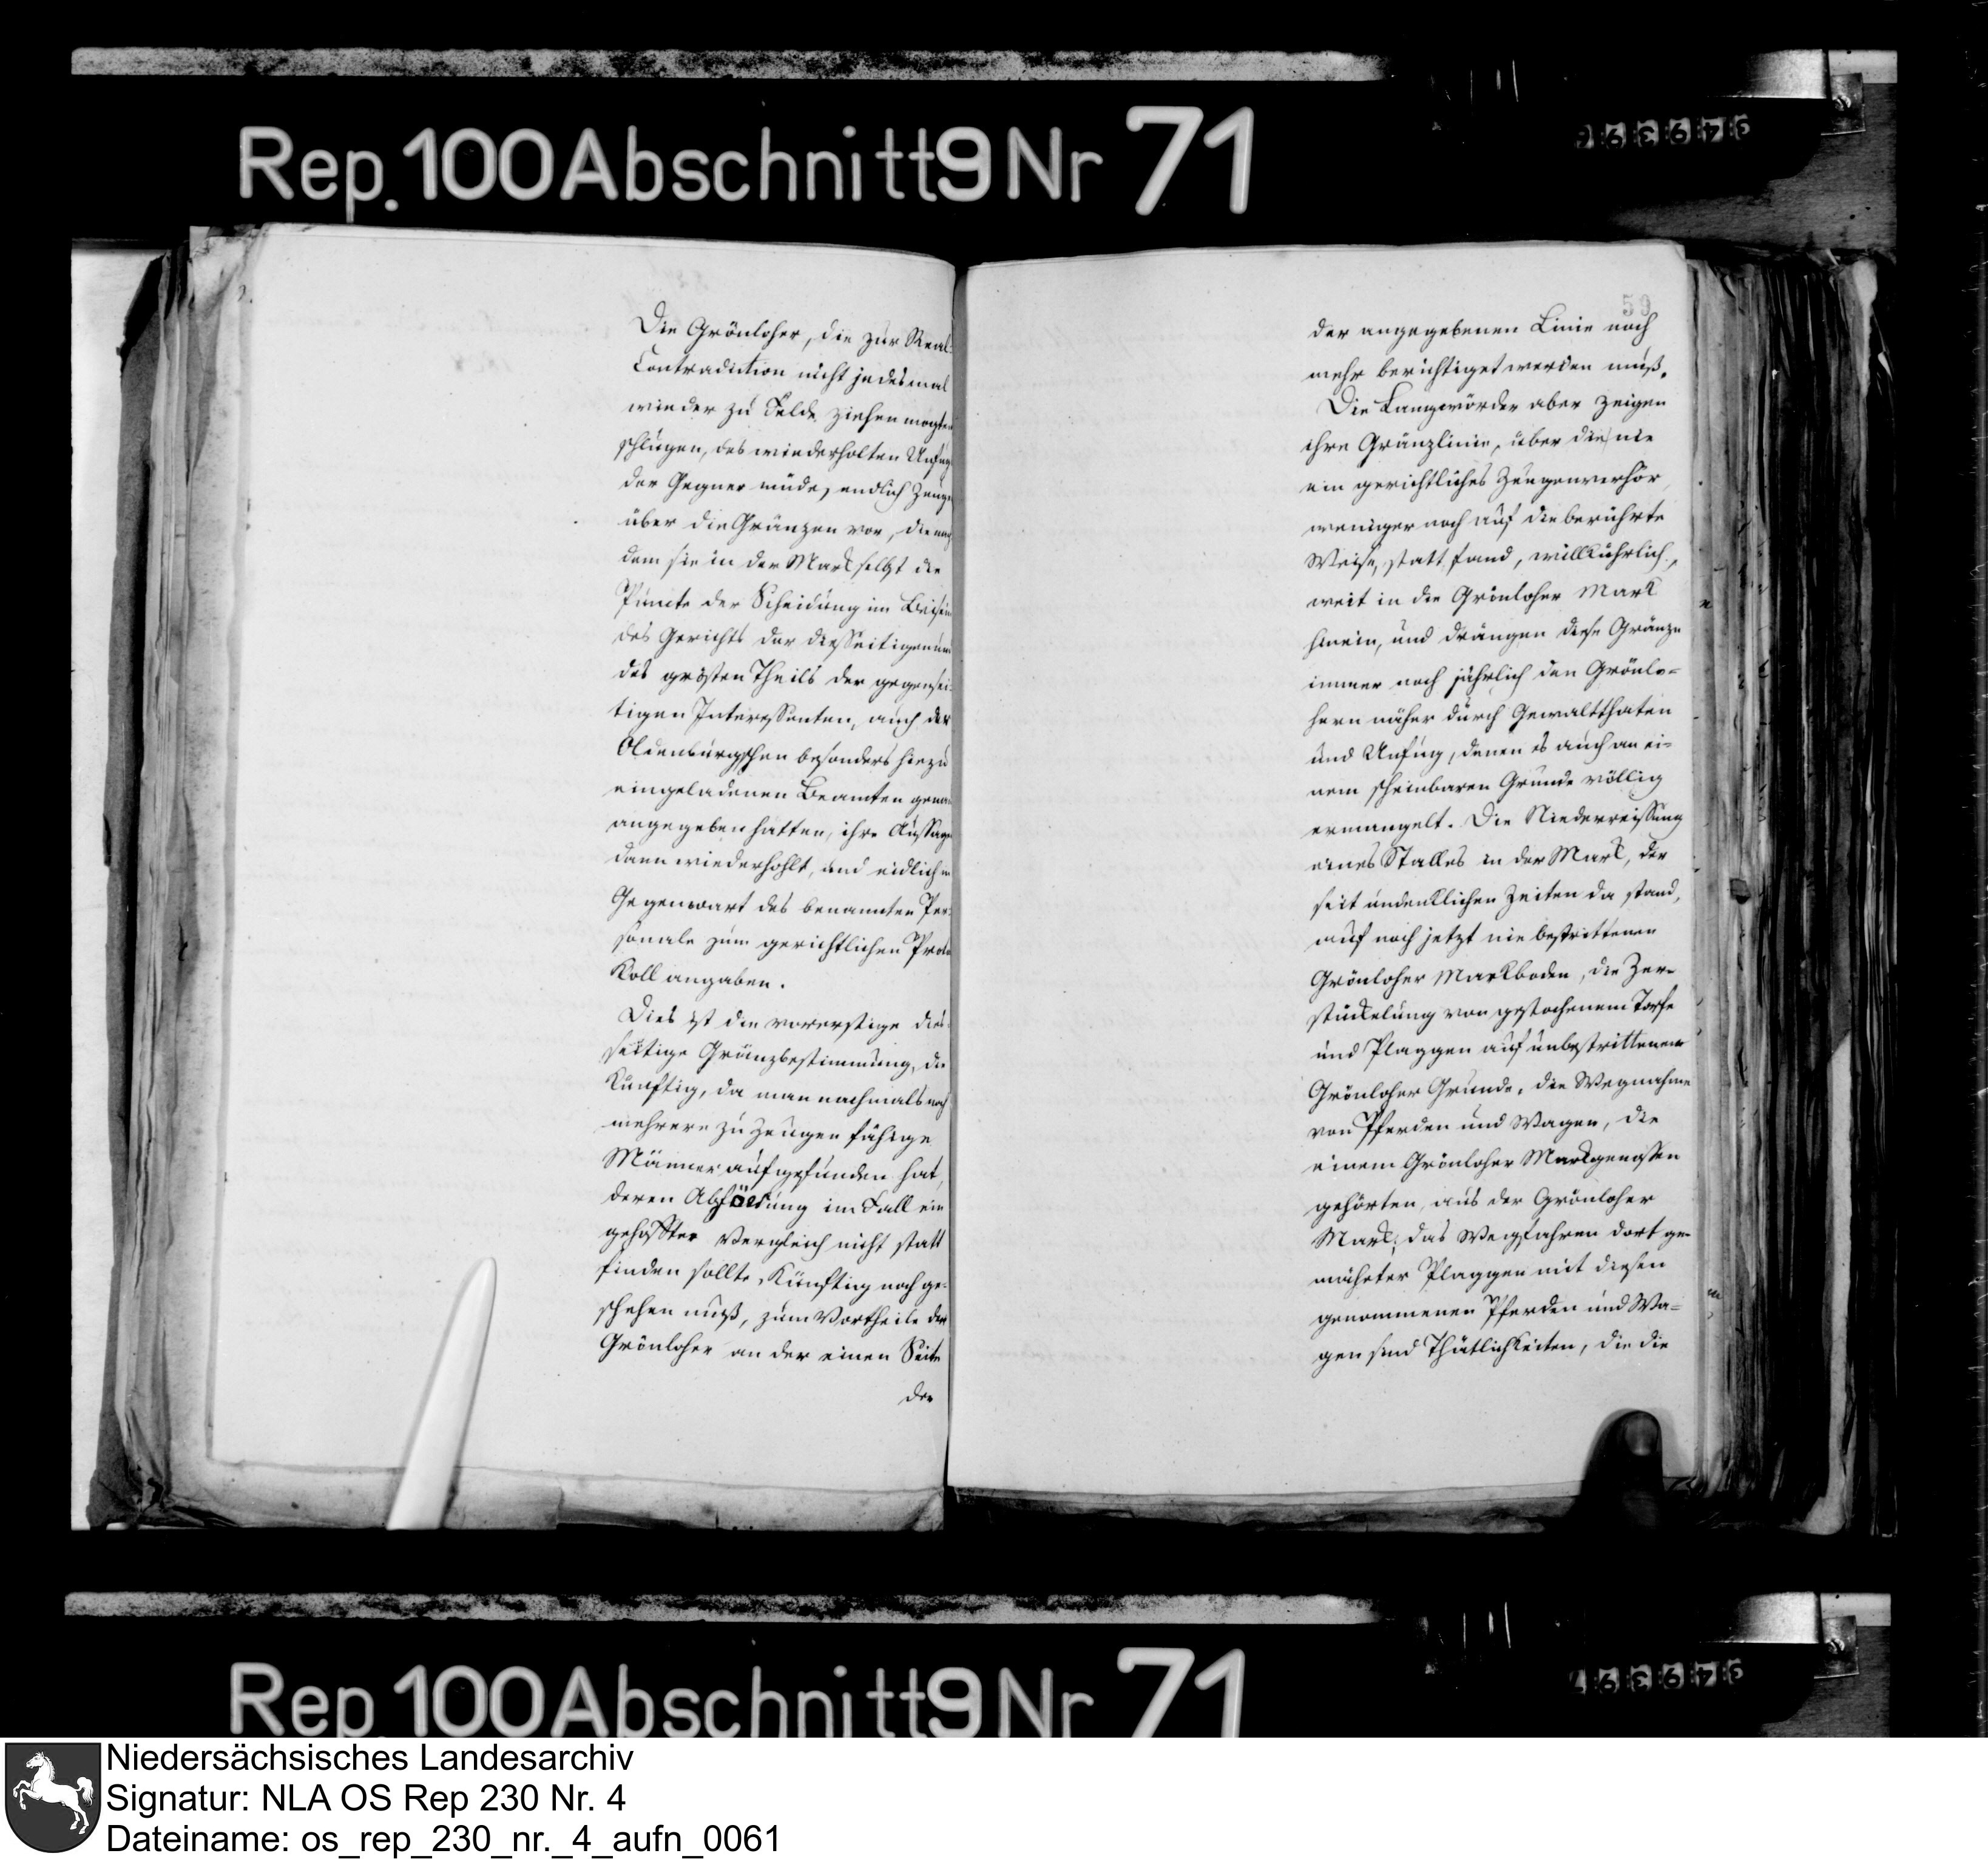 Rep. 100 Abschnitt 9 Nr 71
Die Grönloher, die zur Real-
Contradiction nicht jedesmal
wieder zu Felde ziehen mogten
schlugen, des wiederholten Unfugs
der Gegner müde, endlich Zeugen
über die Gränzen vor, die nach
dem sie in der Mark selbst die
Puncte der Scheidung im Beisein
des Gerichts der diesseitigen und
des grösten Theils der gegensei-
tigen Interessenten, auch der
Oldenburgschen besonders hiezu
eingeladenen Beamten genau
angegeben hatten, ihre Aussage
dann wiederhohlt, und eidlich in
Gegenwart des benannten Per-
sonale zum gerichtlichen Proto
koll angaben.
Dies ist die vorerstige dies-
seitige Gränzbestimmung, die
künftig, da man nachmals noch
mehrere zu Zeugen fähige
Männer aufgefunden hat,
deren Abhörung im Fall ein
gehoffter Vergleich nicht statt
finden sollte, künftig noch ge-
schehen muß, zum Vortheile der
Grönloher an der einen Seite
der
59
der angegebenen Linie noch
mehr berichtiget werden muß.
Die Langwörder aber zeigen
ihre Gränzlinie, über die nie
ein gerichtliches Zeugenverhör,
weniger noch auf die berührte
Weise, statt fand, willkührlich,
weit in die Grönloher Mark
hinein, und drängen diese Gränze
immer noch jährlich den Grönlo-
hern näher durch Gewaltthaten
und Unfug, denen es auch an ei-
nem scheinbaren Grunde völlig
ermangelt. Die Niederreissung
eines Stalles in der Mark, der
seit undenklichen Zeiten da stand,
auf noch jetzt nie bestrittenen
Grönloher Markboden, die Zer-
stückelung von gestochenem Torfe
und Plaggen auf unbestrittenem
Grönloher Grunde, die Wegnahme
von Pferden und Wagen, die
einem Grönloher Markgenossen
gehörten, aus der Grönloher
Mark, das Wegfahren dort ge-
mäheter Plaggen mit diesen
genommenen Pferden und Wa-
gen sind Thätlichkeiten, die die
Rep. 100 Abschnitt 9 Nr 71
Niedersächsisches Landesarchiv
Signatur: NLA OS Rep 230 Nr. 4
Dateiname: os_rep_230_nr._4_aufn_0061